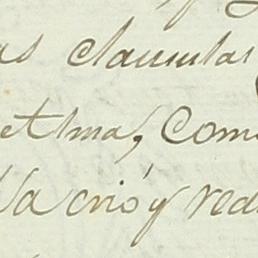 as clausulas
etma, Com
la crió y red